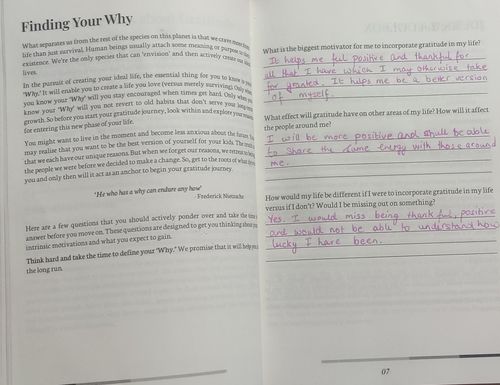 Finding Your Why
What separates us from the rest of the species on this planet is that we crave more from
life than just survival. Human beings usually attach some meaning or purpose to their
existence. We're the only species that can 'envision' and then actively create our
lives.
In the pursuit of creating your ideal life, the essential thing for you to know is your
'Why.' It will enable you to create a life you love (versus merely surviving). Only when
you know your 'Why' will you stay encouraged when times get hard. Only when you
know your 'Why' will you not revert to old habits that don't serve your
growth. So before you start your gratitude journey, look within and explore your reasons
for entering this new phase of your life.
You might want to live in the moment and become less anxious about the future. You
may realise that you want to be the best version of yourself for your kids. The truth is
that we each have our unique reasons. But when we forget our reasons, we retreat to being
the people we were before we decided to make a change. So, get to the roots of what drives
you and only then will it act as an anchor to begin your gratitude journey.
'He who has a why can endure any how'
Frederich Nietzsche
Here are a few questions that you should actively ponder over and take the time to
answer before you move on. These questions are designed to get you thinking about your
intrinsic motivations and what you expect to gain.
Think hard and take the time to define your 'Why.' We promise that it will help you in
the long run.
What is the biggest motivator for me to incorporate gratitude in my life?
It helps me feel positive and thankful for
all that I have which I may otherwise take
for granted. It helps me be a better version
of myself.
What effect will gratitude have on other areas of my life? How will it affect
the people around me?
I will be more positive and shall be able
to share the same energy with those around
me.
How would my life be different if I were to incorporate gratitude in my life
versus if I don't? Would I be missing out on something?
Yes. I would miss being thankful, positive
and would not be able to understand how
lucky I have been.
07